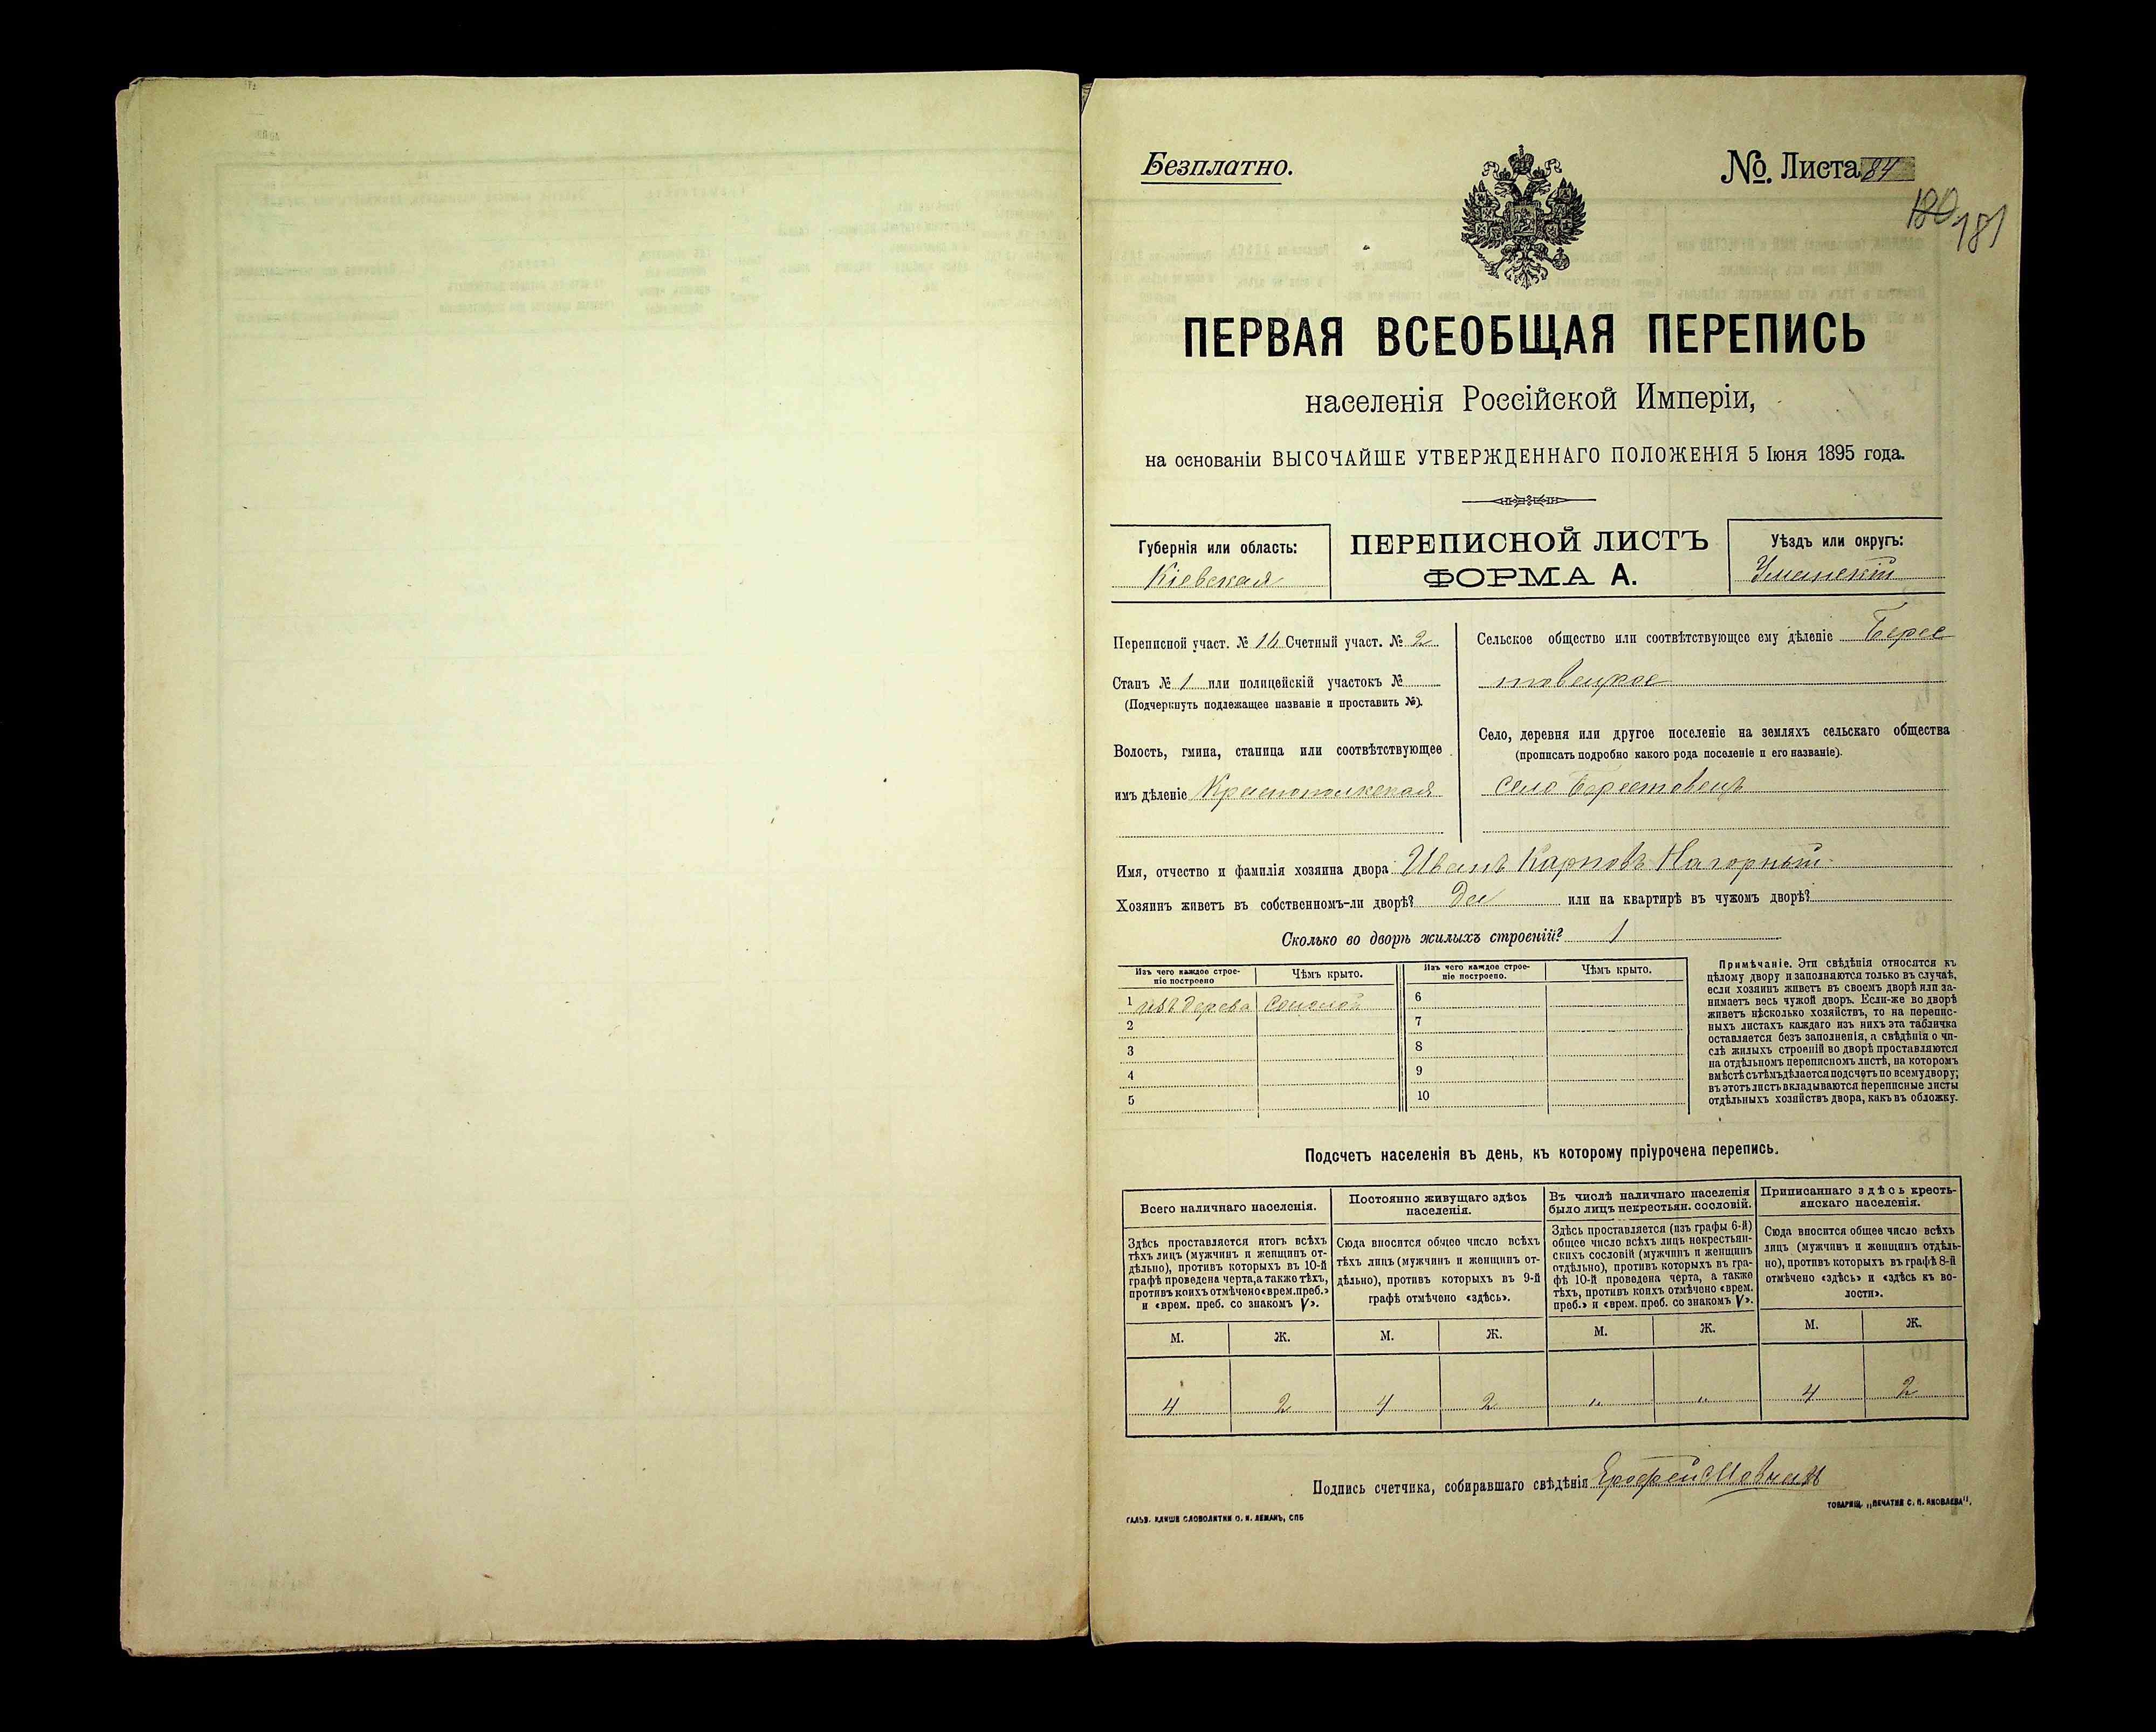 Безплатно.
№ Листа 84
180 181
ПЕРВАЯ ВСЕОБЩАЯ ПЕРЕПИСЬ
населенія Россійской Имперіи,
на основаніи ВЫСОЧАЙШЕ УТВЕРЖДЕННАГО ПОЛОЖЕНІЯ 5 Іюня 1895 года.
Губернія или область:
Кіевская
ПЕРЕПИСНОЙ ЛИСТЪ
ФОРМА А.
Уѣздъ или округъ:
Уманскій
Переписной участ. № 14 Счетный участ. № 2
Станъ № 1 или полицейскій участокъ №
(Подчеркнуть подлежащее названіе и проставить №).
Волость, гмина, станица или соотвѣтствующее
имъ дѣленіе Краснополкская
Сельское общество или соотвѣтствующее ему дѣленіе Берес
товецкое
Село, деревня или другое поселеніе на земляхъ сельскаго общества
(прописать подробно какого рода поселеніе и его названіе).
село Берестовецъ
Имя, отчество и фамилія хозяина двора Иванъ Карповъ Нагорный
Хозяинъ живетъ въ собственномъ-ли дворѣ? Да или на квартирѣ въ чужомъ дворѣ?
Сколько во дворѣ жилыхъ строеній? 1
Изъ чего каждое строе-
ніе построено
Чѣмъ крыто.
Изъ чего каждое строе-
ніе построено.
Чѣмъ крыто.
1 изъ дерева соломой
2
3
4
5
6
7
8
9
10
Примѣчаніе. Эти свѣдѣнія относятся къ
цѣлому двору и заполняются только въ случаѣ,
если хозяинъ живетъ въ своемъ дворѣ или за-
нимаетъ весь чужой дворъ. Если-же во дворѣ
живетъ нѣсколько хозяйствъ, то на перепис-
ныхъ листахъ каждаго изъ нихъ эта табличка
оставляется безъ заполненія, а свѣдѣнія о чи-
слѣ жилыхъ строеній во дворѣ проставляются
на отдѣльномъ переписномъ листѣ, на которомъ
вмѣстѣ съ тѣмъ дѣлается подсчетъ по всему двору;
въ этотъ листъ вкладываются переписные листы
отдѣльныхъ хозяйствъ двора, какъ въ обложку.
Подсчетъ населенія въ день, къ которому пріурочена перепись.
Всего наличнаго населенія.
Здѣсь проставляется итогъ всѣхъ
тѣхъ лицъ (мужчинъ и женщинъ от-
дѣльно), противъ которыхъ въ 10-й
графѣ проведена черта, а также тѣхъ,
противъ коихъ отмѣчено «врем. преб.»
и «врем. преб. со знакомъ V».
Постоянно живущаго здѣсь
населенія.
Сюда вносится общее число всѣхъ
тѣхъ лицъ (мужчинъ и женщинъ от-
дѣльно), противъ которыхъ въ 9-й
графѣ отмѣчено «здѣсь».
Въ числѣ наличнаго населенія
было лицъ некрестьян. сословій.
Здѣсь проставляется (изъ графы 6-й)
общее число всѣхъ лицъ некрестьян-
скихъ сословій (мужчинъ и женщинъ
отдѣльно), противъ которыхъ въ гра-
фѣ 10-й проведена черта, а также
тѣхъ, противъ коихъ отмѣчено «врем.
преб.» и «врем. преб. со знакомъ V».
Приписаннаго здѣсь кресть-
янскаго населенія.
Сюда вносится общее число всѣхъ
лицъ (мужчинъ и женщинъ отдѣль-
но), противъ которыхъ въ графѣ 8-й
отмѣчено «здѣсь» и «здѣсь къ во-
лости».
М. Ж. М. Ж. М. Ж. М. Ж.
4 2 4 2 „ „ 4 2
Подпись счетчика, собиравшаго свѣдѣнія Ерофей Мовчанъ
ГАЛЬВ. КЛИШЕ СЛОВОЛИТНИ О. И. ЛЕМАНЪ, СПБ
ТОВАРИЩ. „ПЕЧАТНЯ С. П. ЯКОВЛЕВА".